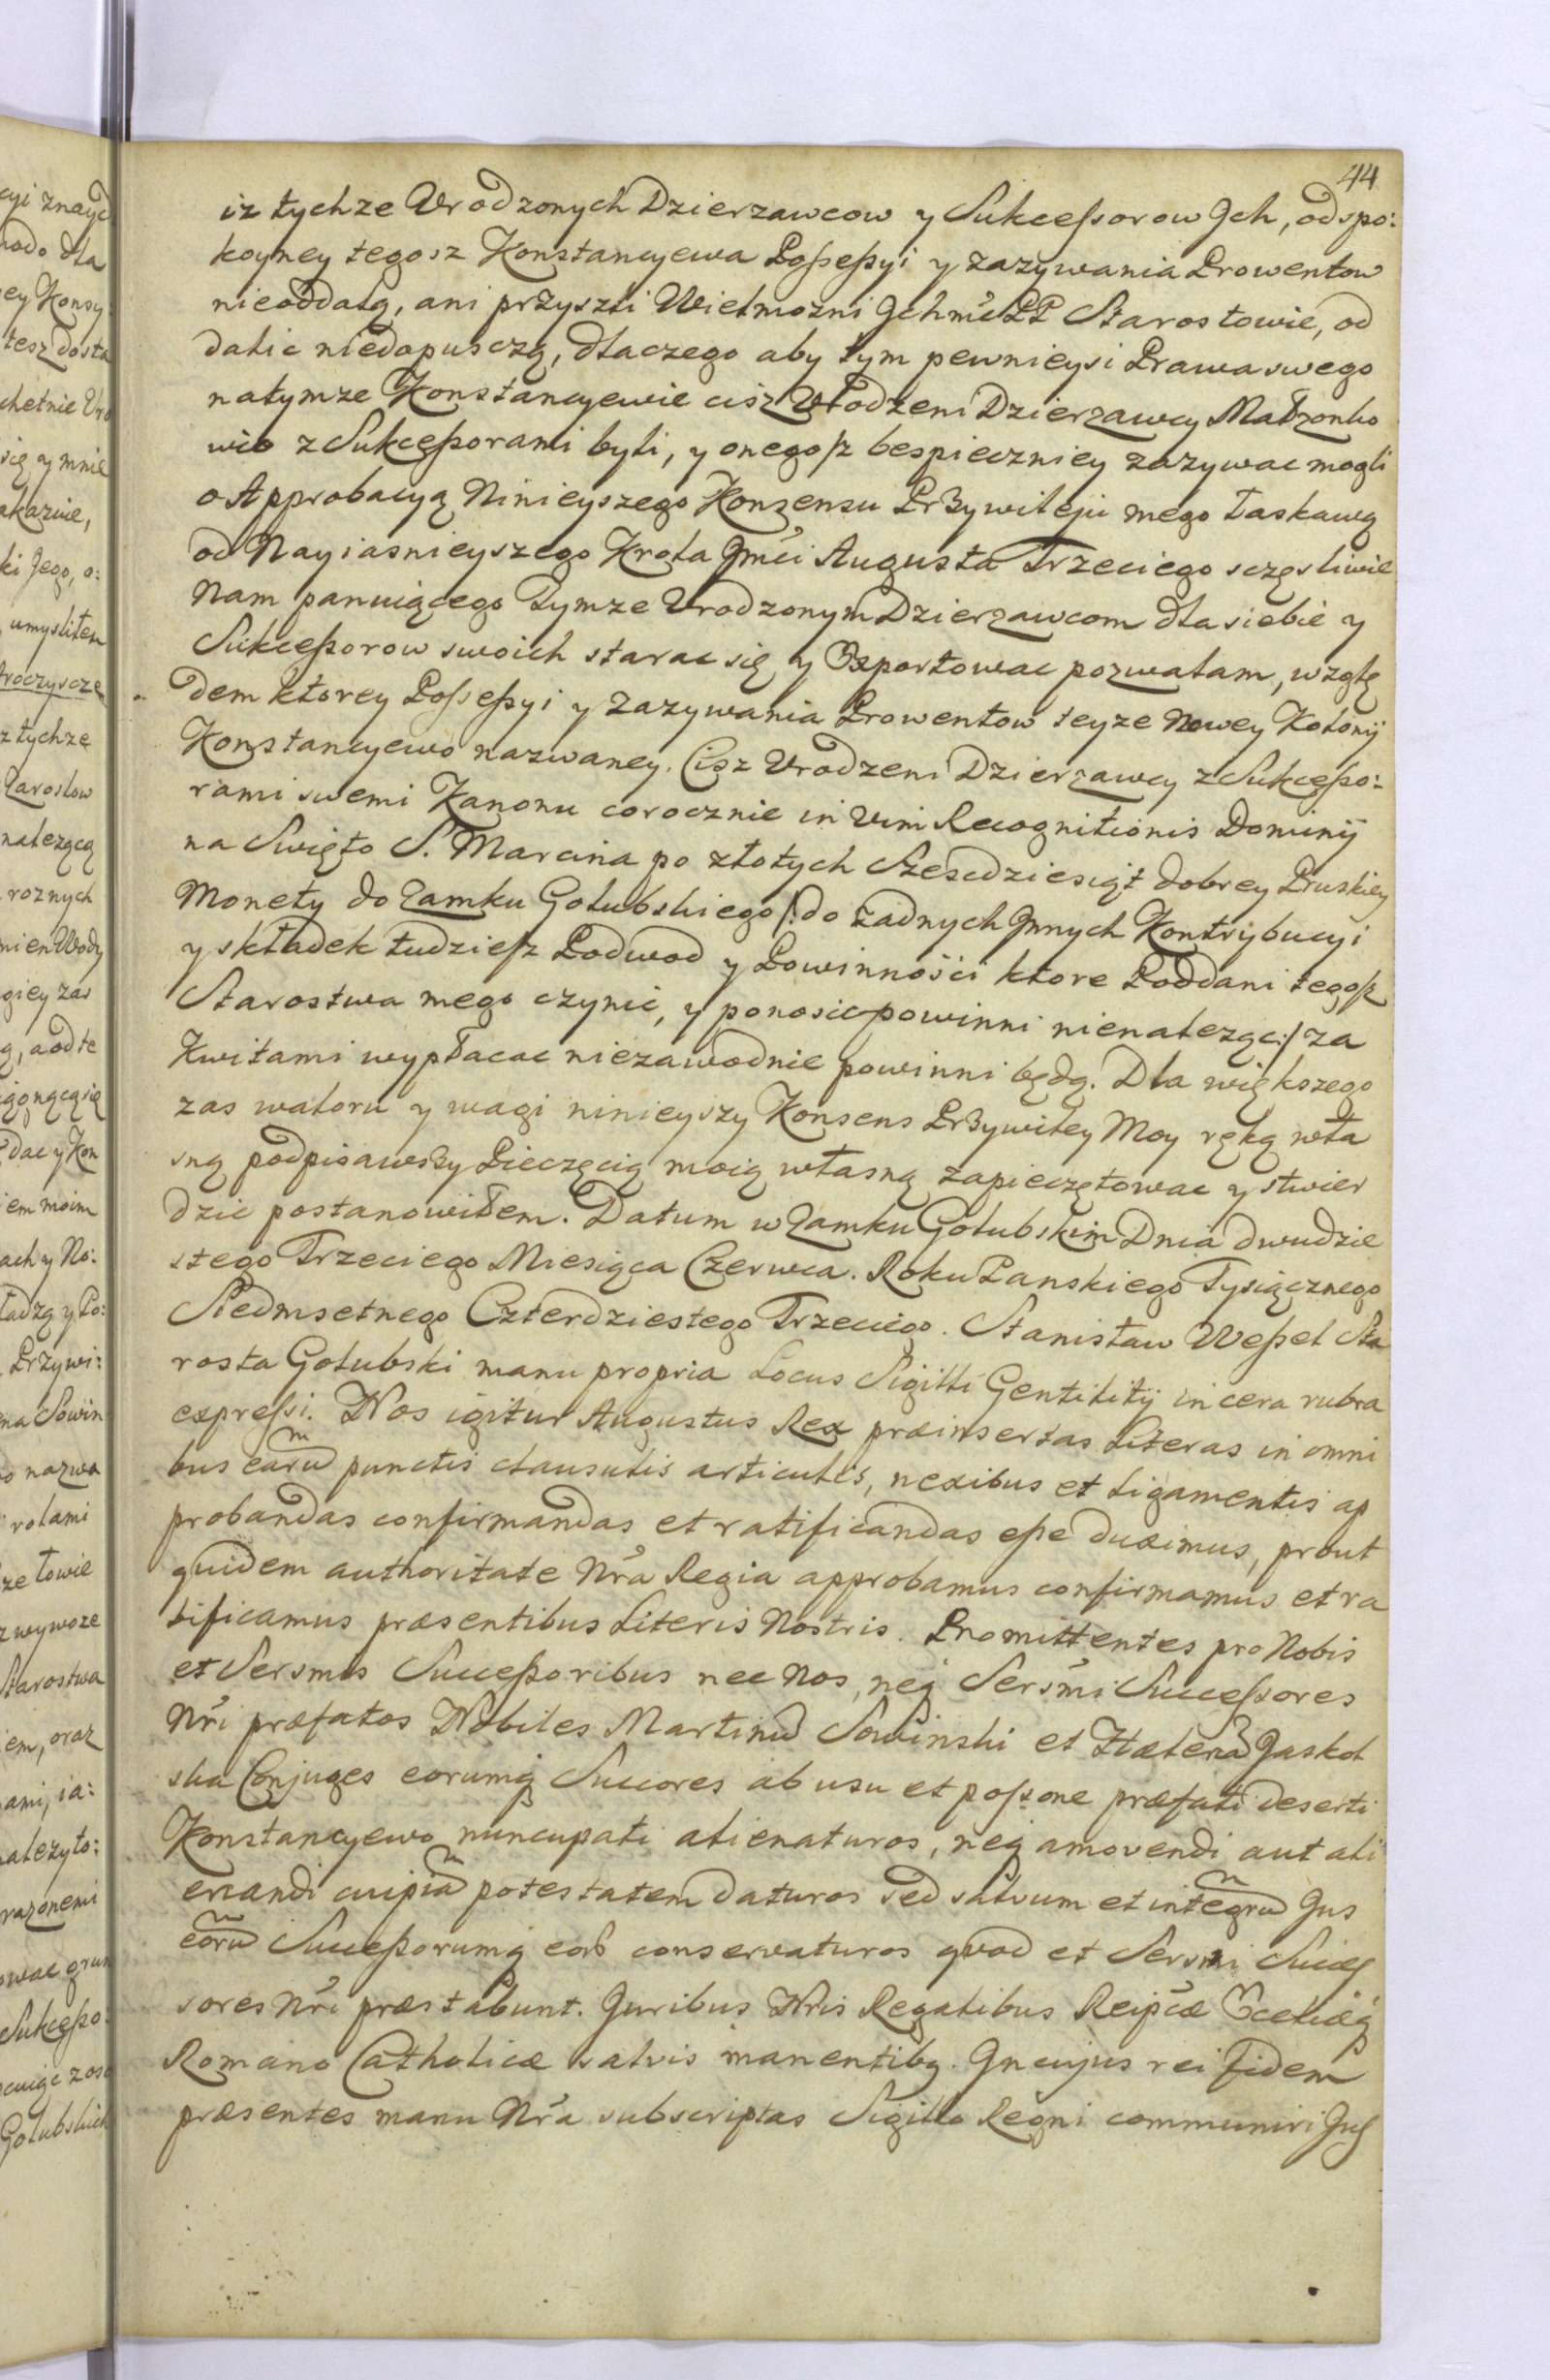 44
iz tychze Urodzonych Dzierzawcow y Sukcessorow Jch, od spo:
koyney tegosz Konstancyewa Possessyi y zazywania Prowentow
nieoddalą, ani przyszli Wielmozni Jchmc PP Starostowie, od
dalic niedopuszczą, dlaczego aby tym pewnieysi Prawa swego
natymze Konstancyewie cisz Urodzeni Dzierzawcy Małzonko
wie z Sukcessorami byli, y onegosz bespieczniey zazywac mogli
o Approbacyą Ninieyszego Konsensu Przywileju mego łaskawą
od Nayiasnieyszego Krola Jmci Augusta Trzeciego sczęsliwie
Nam panuiącego Tymze Urodzonym Dzierzawcom dla siebie y
Sukcessorow swoich starac się y Exportowac pozwalam, wzglę
dem ktorey Possessyi y Zazywania Prowentow teyze Nowey Kolonij
Konstancyewo nazwaney. Cisz Urodzeni Dzierzawcy z Sukcesso:
rami swemi Kanonu corocznie in vim Recognitionis Dominij
na Swięto S. Marcina po złotych Szescdziesiąt dobrey Pruskiey
Monety do Zamku Golubskiego /: do zadnych Jnnych Kontrybucyi
y składek tudziesz Podwod y Powinności ktore Poddani tegosz
Starostwa mego czynic, y ponosic powinni nienaleząc :/ za
Kwitami wypłacac niezawodnie powinni będą. Dla większego
zas waloru y wagi ninieyszy Konsens Przywiley Moy ręką wła
sną podpisawszy Pieczęcią moią własną zapieczętowac y stwier
dzic postanowiłem. Datum w Zamku Golubskim Dnia dwudzie
stego Trzeciego Miesiąca Czerwca. Roku Panskiego Tysiącznego
Siedmsetnego Czterdziestego Trzeciego. Stanisław Wessel Sta
rosta Golubski manu propria Locus Sigilli Gentilitij in cera rubra
expressi. Nos igitur Augustus Rex præinsertas Literas in omni
bus earum punctis clausulis articulis, nexibus et ligamentis ap
probandas confirmandas et ratificandas esse duximus, prout
quidem authoritate Nra Regia approbamus confirmamus et ra
tificamus præsentibus Literis Nostris. Promittentes pro Nobis
et Sersmis Successoribus nec Nos, neq Sersmi Successores
Nri præfatos Nobiles Martinu Sowinski et Jaskol
ska Conjuges eorumq Succores ab usu et possone præfati deserti
Konstancyewo nuncupati alienaturos, neq amovendi aut ali
enandi cuipia potestatem daturos sed salvum et integru Jus
eoru Successorumq eor conservaturos quod et Sersmi Succes
sores Nri præstabunt. Juribus Nris Regalibus Reipcæ Eccliæq
Romano Catholicæ salvis manentibq. Jn cujus rei fidem
præsentes manu Nra subscriptas Sigillo Regni communiri Jus